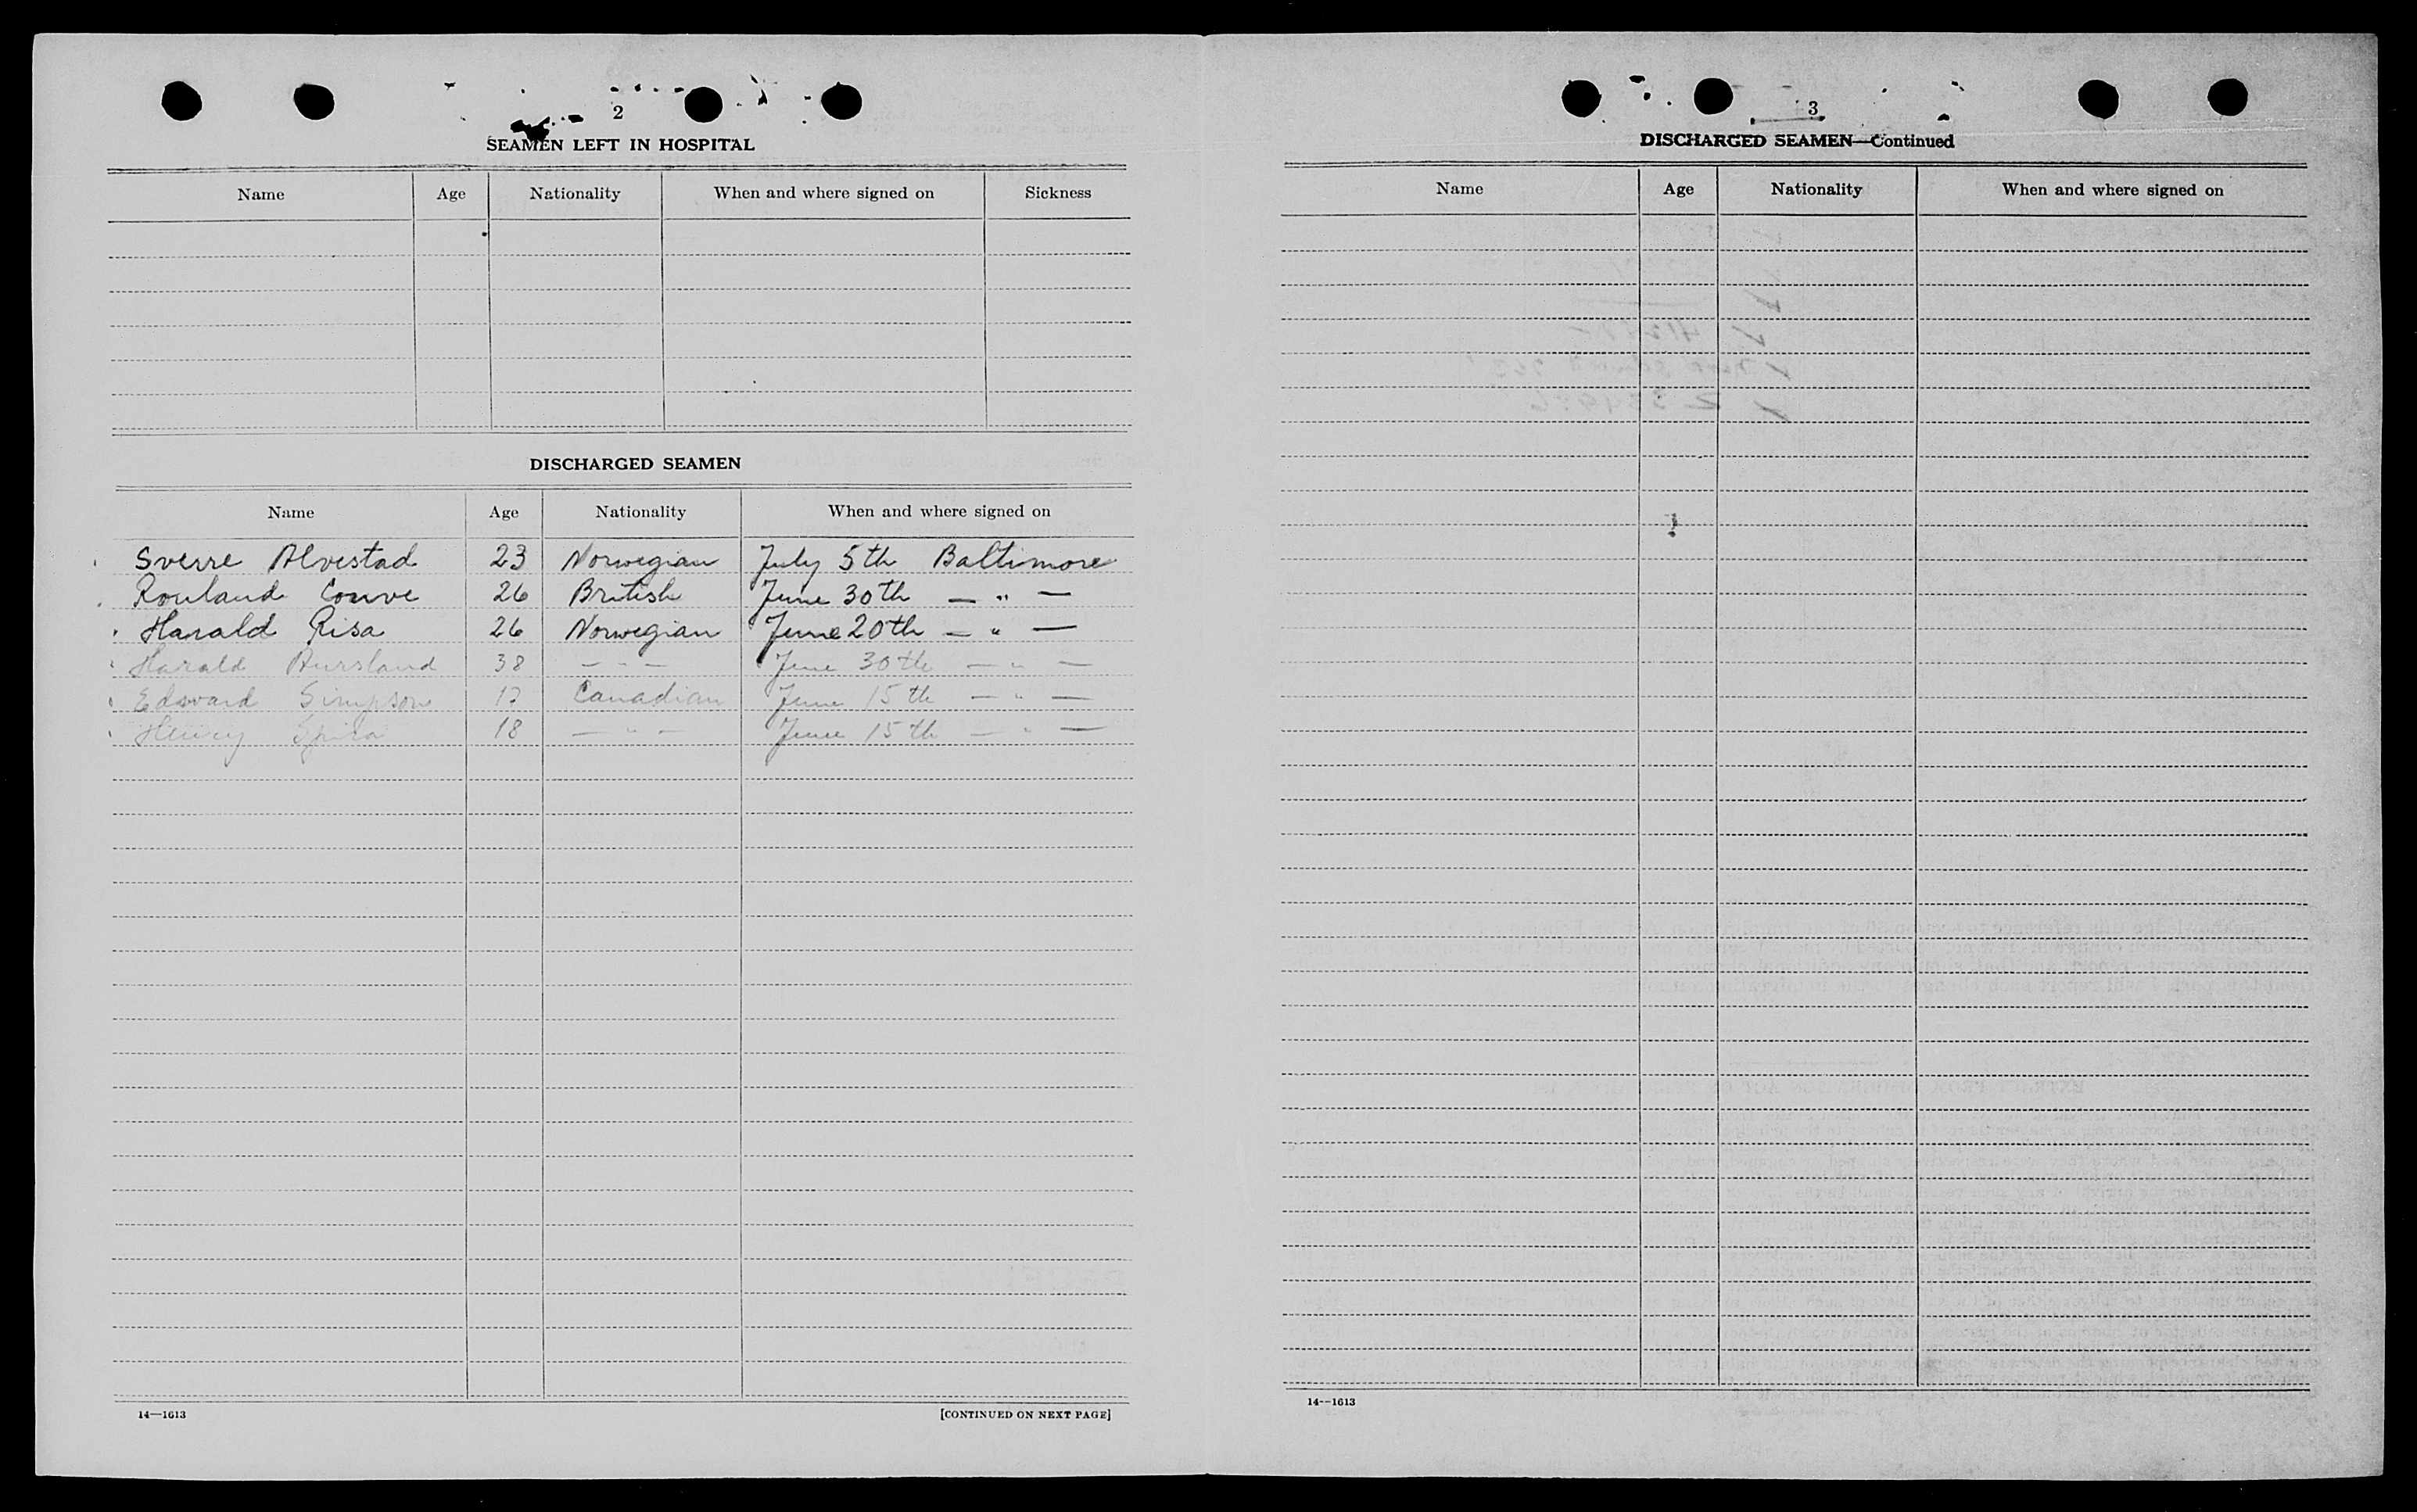 2
SEAMEN LEFT IN HOSPITAL
Name Age Nationality When and where signed on Sickness
DISCHARGED SEAMEN
Name Age Nationality When and where signed on
Sverre Alvestad 23 Norwegian July 5th Baltimore
Rouland Couve 26 British June 30th — " —
Harald Risa 26 Norwegian June 20th — " —
Harald 38 — " — June 30th — " —
Edward Simpson 17 Canadian June 15th — " —
Henry Spira 18 — " — June 15th — " —
14—1613 [CONTINUED ON NEXT PAGE]
3
DISCHARGED SEAMEN—Continued
Name Age Nationality When and where signed on
14—1613